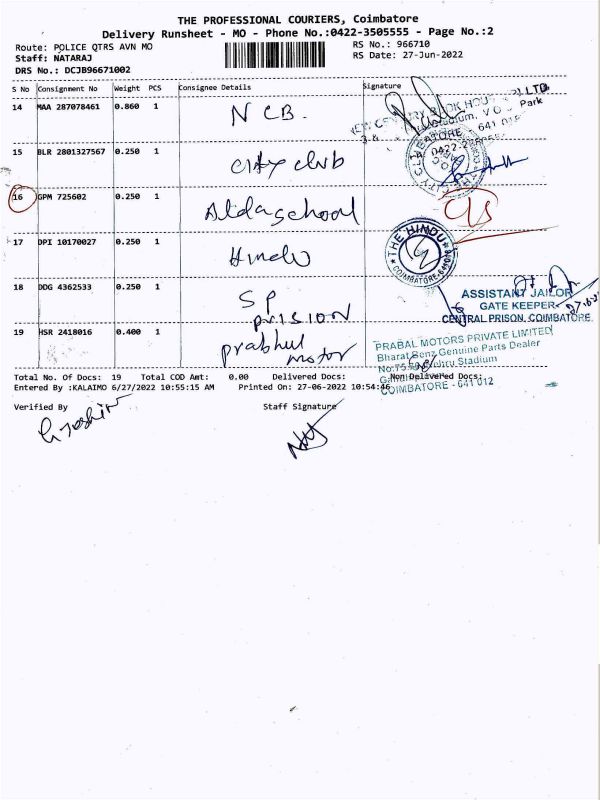 THE PROFESSIONAL COURIERS, Coimbatore
Delivery Runsheet - MO - Phone No.:0422-3505555 - Page No.:2
Route: POLICE QTRS AVN MO
RS No.: 966710
Staff: NATARAJ
RS Date: 27-Jun-2022
DRS No.: DCJB96671002
S No Consignment No Weight PCS Consignee Details Signature
14 MAA 287078461 0.860 1 NCB.
15 BLR 2801327567 0.250 1 City club
16 GPM 725602 0.250 1 Aldaschool
17 DPI 10170027 0.250 1 Hindu
THE HINDU
COIMBATORE-641018
18 DDG 4362533 0.250 1 SP
PRISION
ASSISTANT JAILOR
GATE KEEPER
CENTRAL PRISON, COIMBATORE.
19 HSR 2418016 0.400 1 prabhul
motor
PRABAL MOTORS PRIVATE LIMITED
Bharat Benz Genuine Parts Dealer
Nehru Stadium
COIMBATORE - 641 012
Total No. Of Docs: 19 Total COD Amt: 0.00 Delivered Docs: Non Delivered Docs:
Entered By :KALAIMO 6/27/2022 10:55:15 AM Printed On: 27-06-2022 10:54:46
Verified By Staff Signature